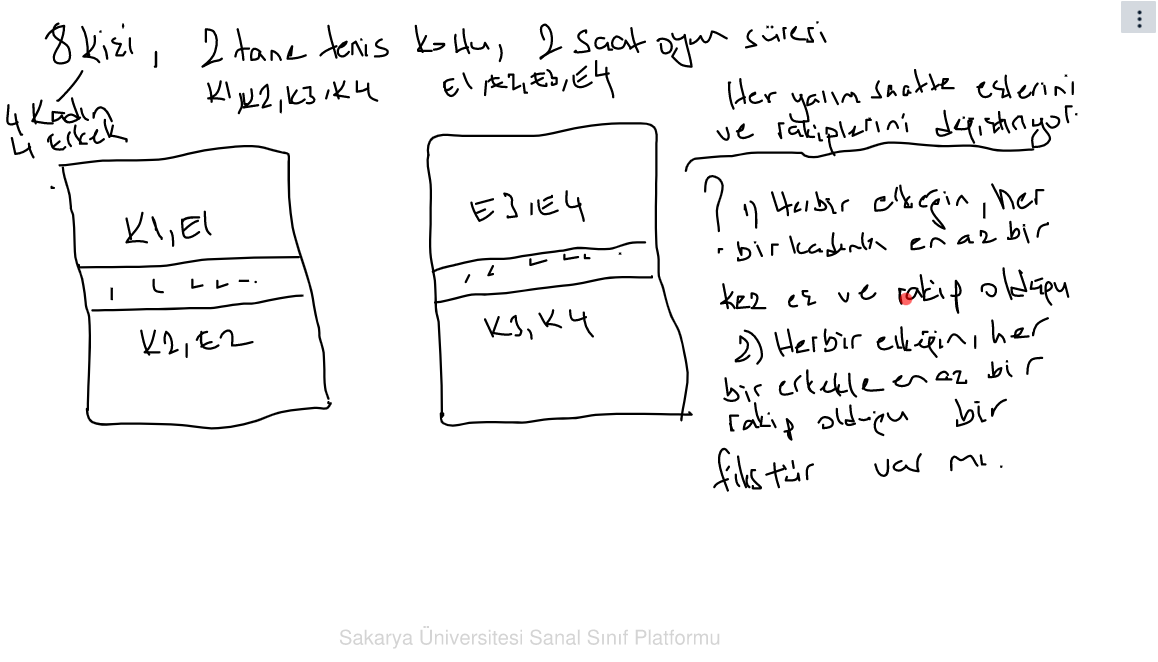 8 kişi, 2 tane tenis kortu, 2 saat oyun süresi
4 Kadın
4 Erkek
K1, K2, K3, K4
E1, E2, E3, E4
Her yarım saatte eşlerini
ve rakiplerini değiştiriyor.
K1, E1
K2, E2
E3, E4
K3, K4
? 1) Herbir erkeğin, her
bir kadınla en az bir
kez eş ve rakip olduğu
2) Herbir erkeğin, her
bir erkekle en az bir
rakip olduğu bir
fikstür var mı.
Sakarya Üniversitesi Sanal Sınıf Platformu